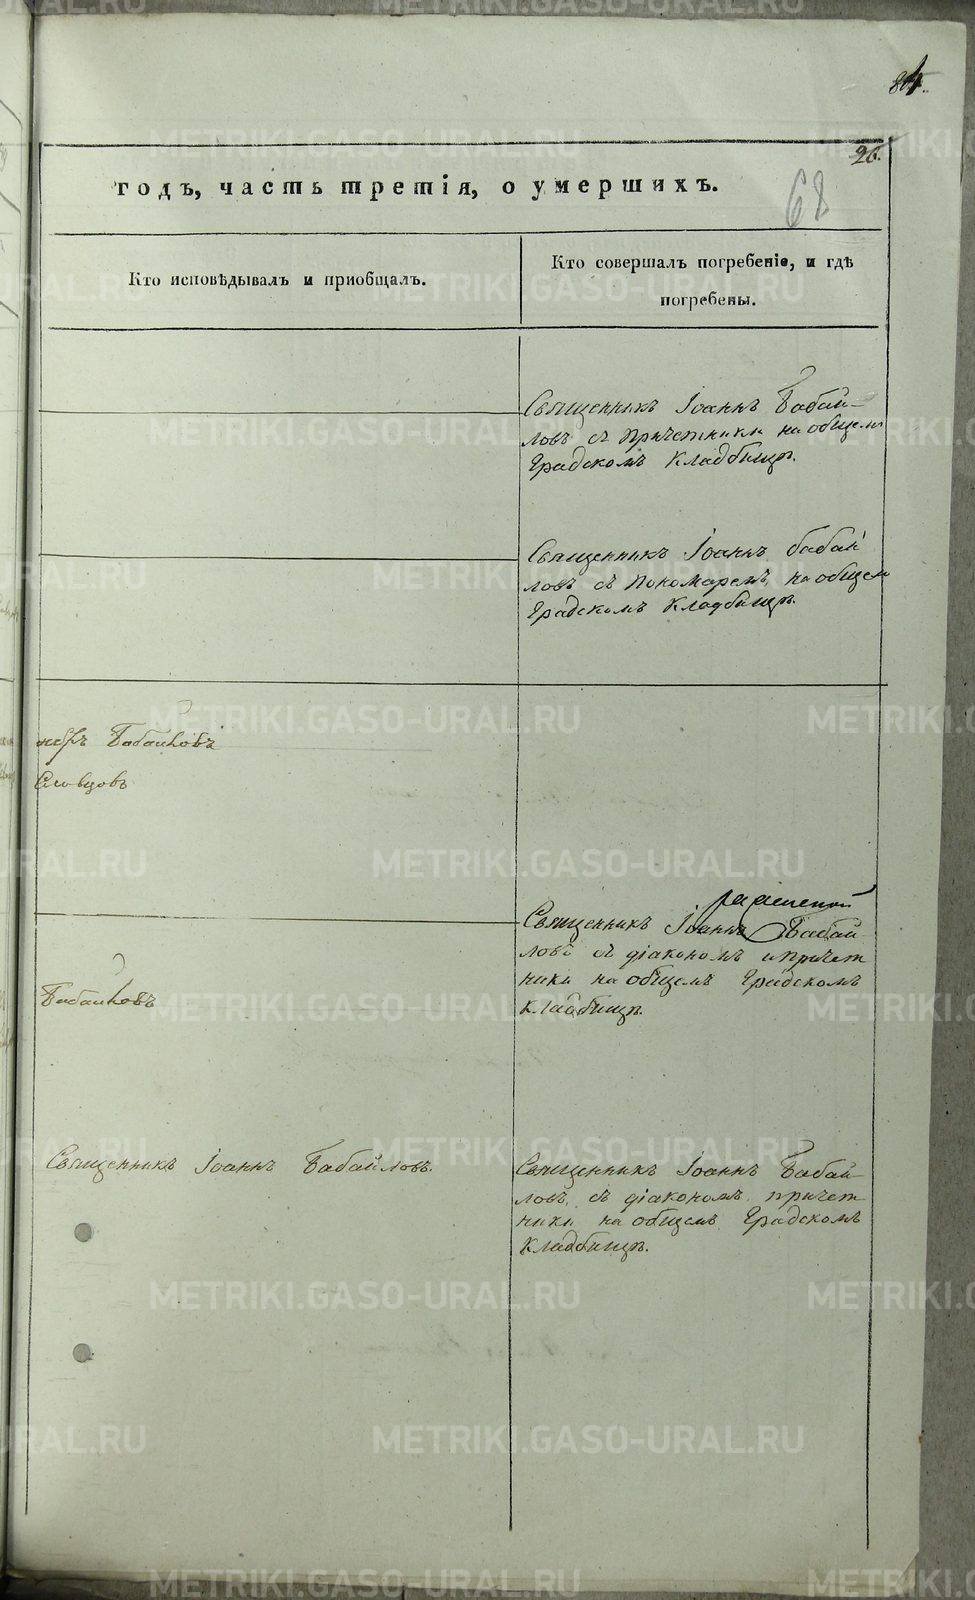 26.
68
годъ, часть третія, о умершихъ.
Кто исповѣдывалъ и пріобщалъ.
Кто совершалъ погребеніе, и гдѣ
погребены.
Священникъ Іоаннъ Бабай-
ловъ съ причетники на общемъ
Градскомъ Кладбищѣ.
Священникъ Іоаннъ Бабай
ловъ съ пономаремъ, на общем
Градскомъ Кладбищѣ.
Словцовъ
Священникъ Іоаннъ Бабай
ловъ съ діакономъ и причет
ники на общемъ Градскомъ
Кладбищѣ.
Священникъ Іоаннъ Бабайловъ.
Священникъ Іоаннъ Бабай
ловъ, съ діакономъ, причет
ники на общемъ Градскомъ
Кладбищѣ.
METRIKI.GASO-URAL.RU